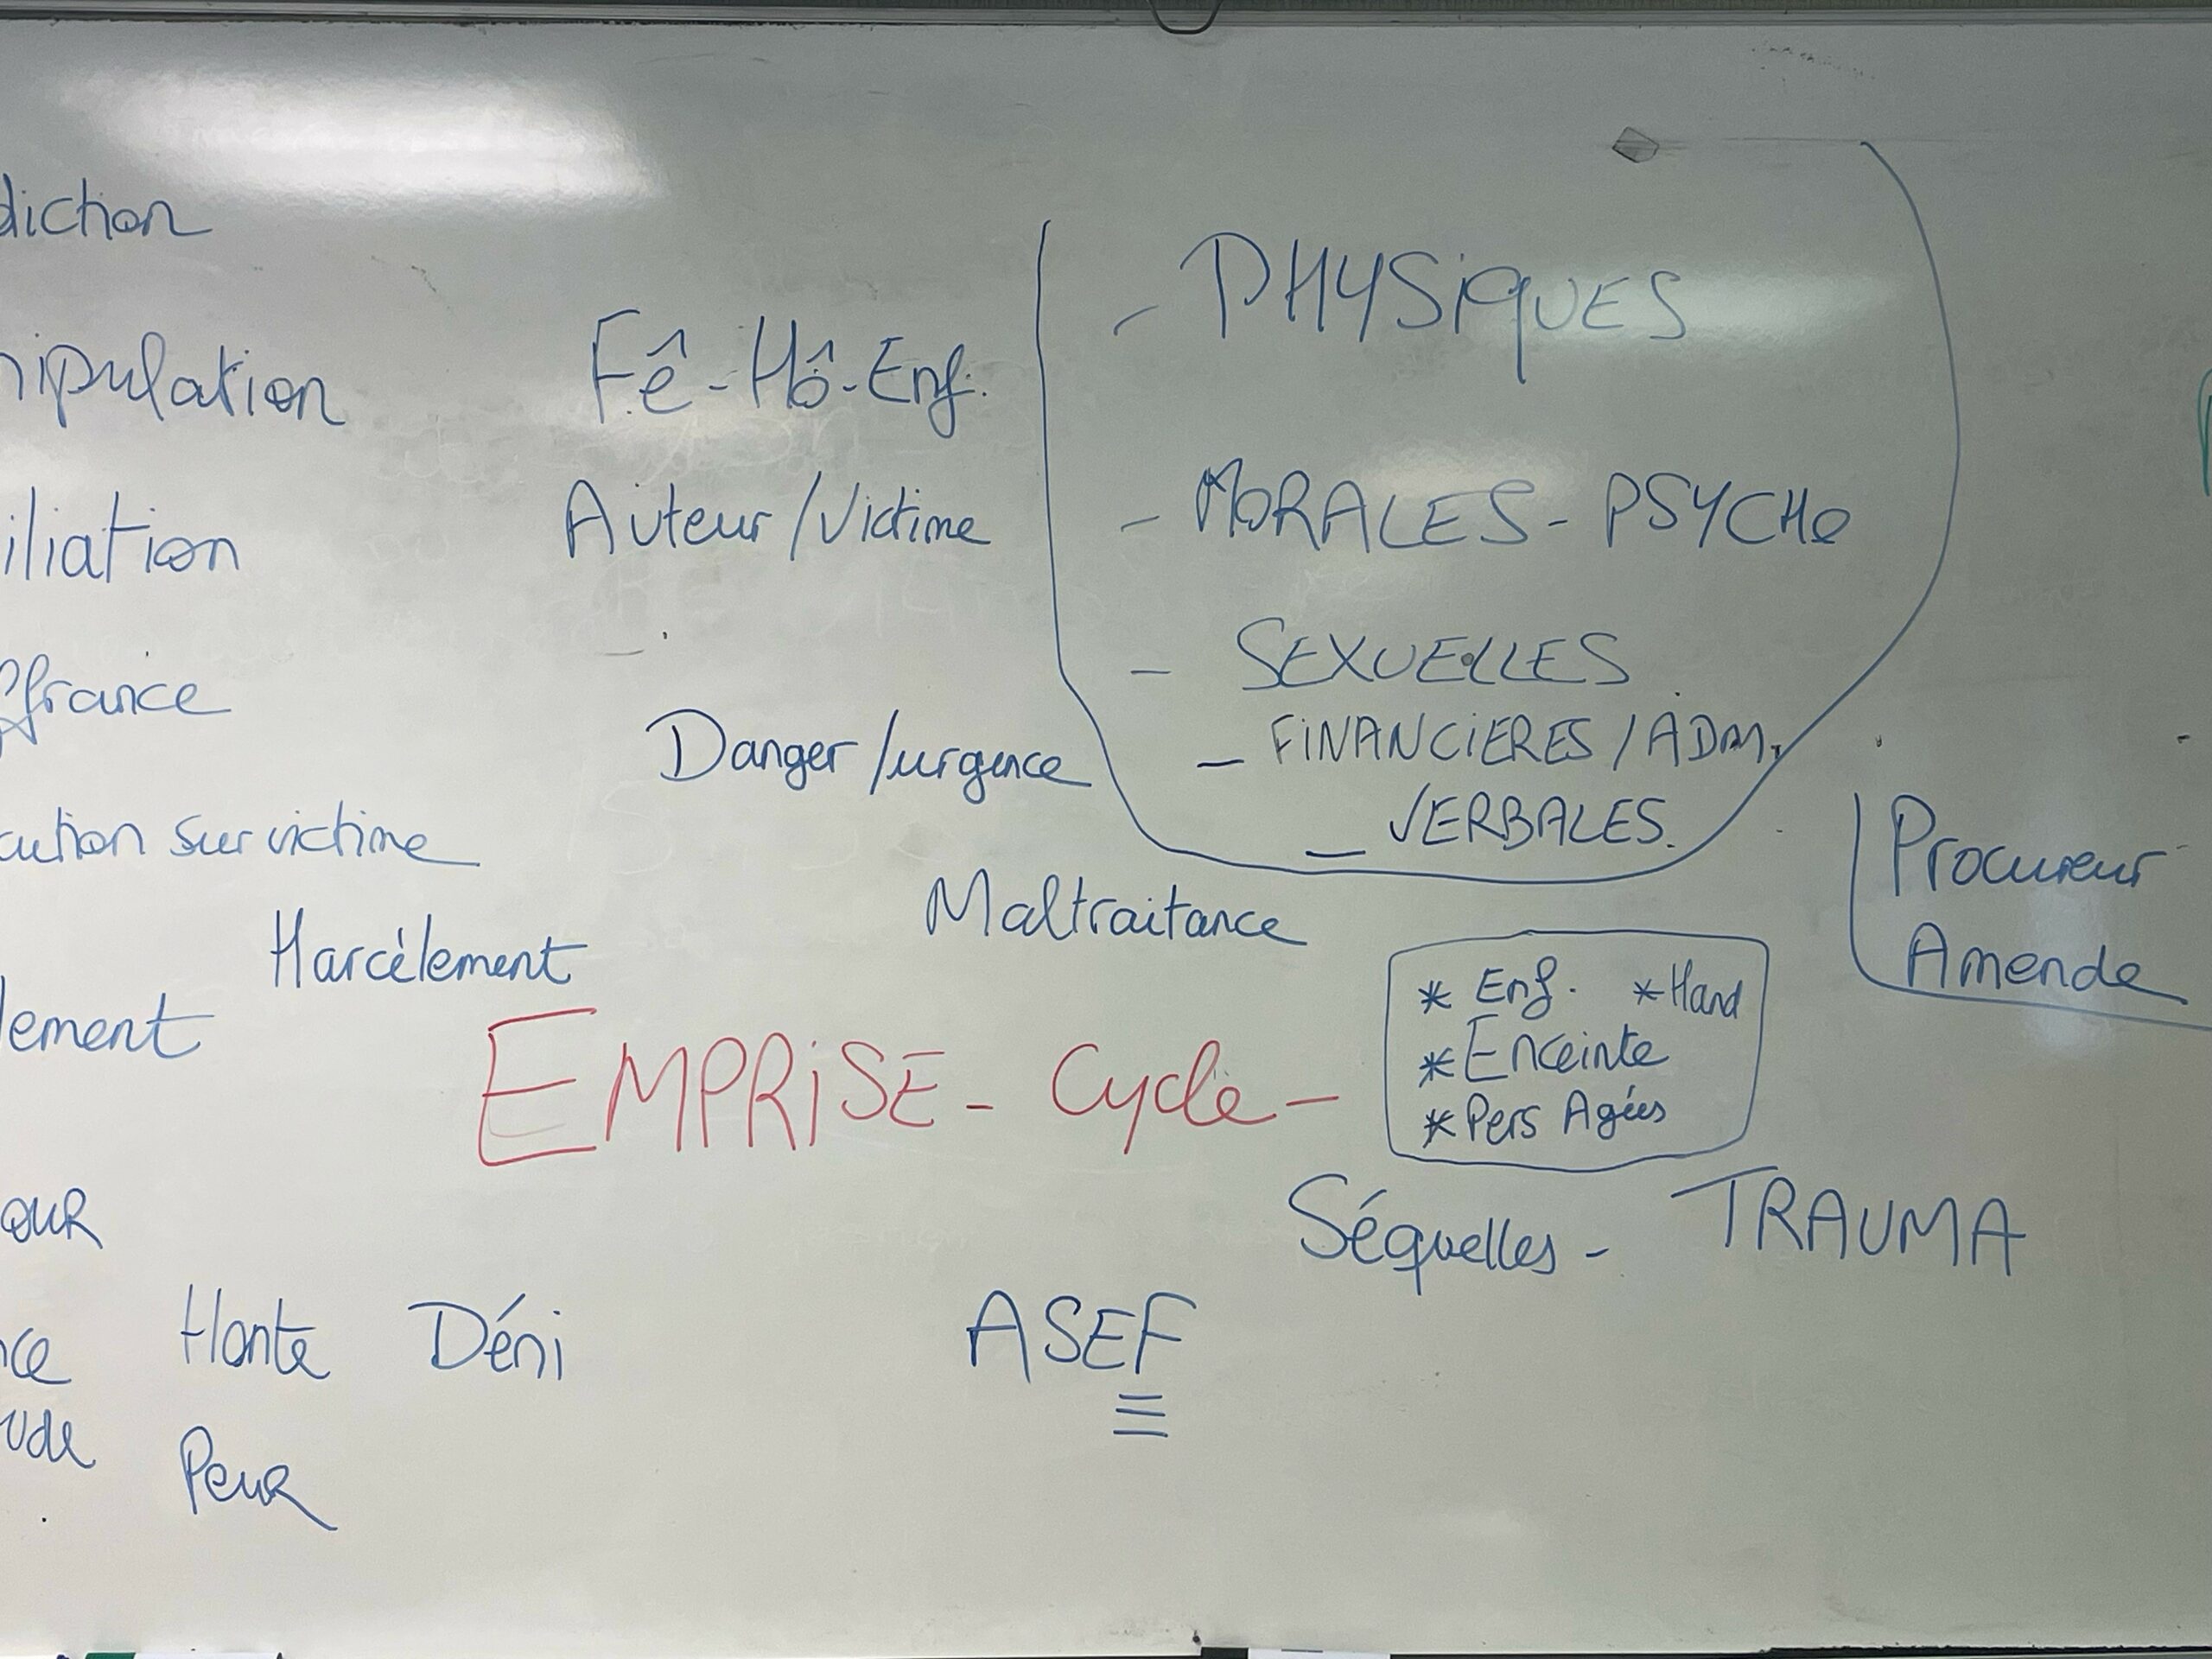 diction
nipulation
iliation
ffrance
cution sur victime
Harcèlement
lement
our
nce
Honte Déni
ude
Peur
Fê - Hô - Enf.
Auteur / Victime
Danger / urgence
- PHYSIQUES
- MORALES - PSYCHO
- SEXUELLES
- FINANCIERES / ADM.
- VERBALES.
Maltraitance
EMPRISE - Cycle -
* Enf. * Hand
* Enceinte
* Pers Agées
Procureur
Amende
Séquelles - TRAUMA
ASEF